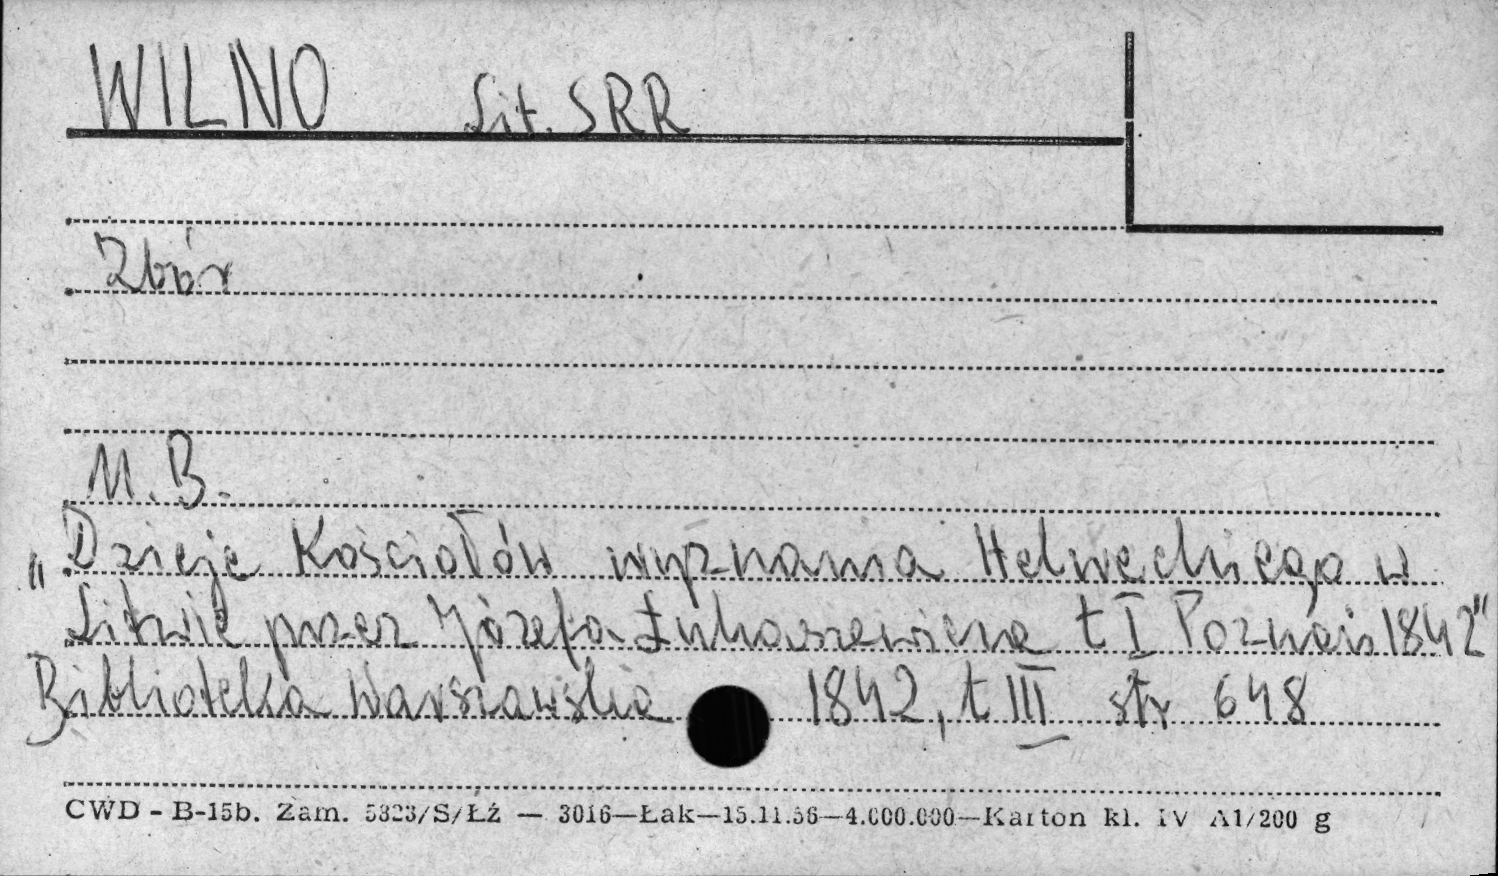 WILNO Lit. SRR
Zbór
M.B.
„Dzieje Kościołów wyznania Helweckiego w
Litwie przez Józefa Łukaszewicza t I Poznań 1842"
Biblioteka Warszawska 1842, t III str 648
CWD - B-15b. Zam. 5323/S/ŁŹ — 3016—Łak—15.11.56—4.000.000—Karton kl. IV A1/200 g